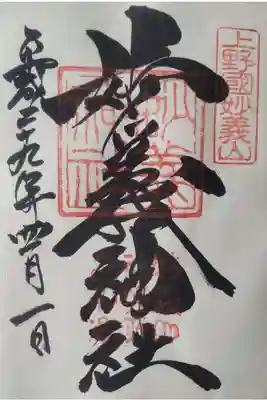 上野国妙義山
妙義神社
平成二十九年四月一日